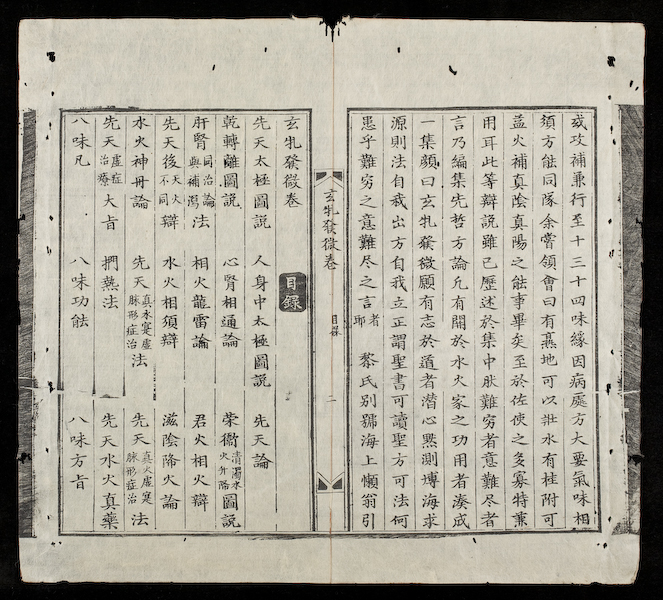 或攻補兼行至十三十四味緣因病處方大要氣味相
須方能同隊余嘗領會曰有熟地可以壯水有桂附可
益火補真陰真陽之能事畢矣至於佐使之多寡特兼
用耳此等辯說雖已歷述於集中肰難穷者意難尽者
言乃編集先哲方論凢有關於水火家之功用者湊成
一集顏曰玄牝發微願有志於道者潛心黙測博海求
源則法自我出方自我立正謂聖書可讀聖方可法何
患乎難穷之意難尽之言者耶 黎氏別號海上懶翁引
玄牝發微卷 目錄 二
玄牝發微卷 目錄
先天太極圖說 人身中太極圖說 先天論
乾轉離圖說 心腎相通論 榮衞清濁水火升降圖說
肝腎同治論與補瀉法 相火龍雷論 君火相火辯
先天後天火不同辯 水火相須辯 滋陰降火論
水火神丹論 先天真水寔虛脉形症治法 先天真火虛寔脉形症治法
先天虛症治療大旨 捫𤍠法 先天水火真藥
八味凡 八味功能 八味方旨